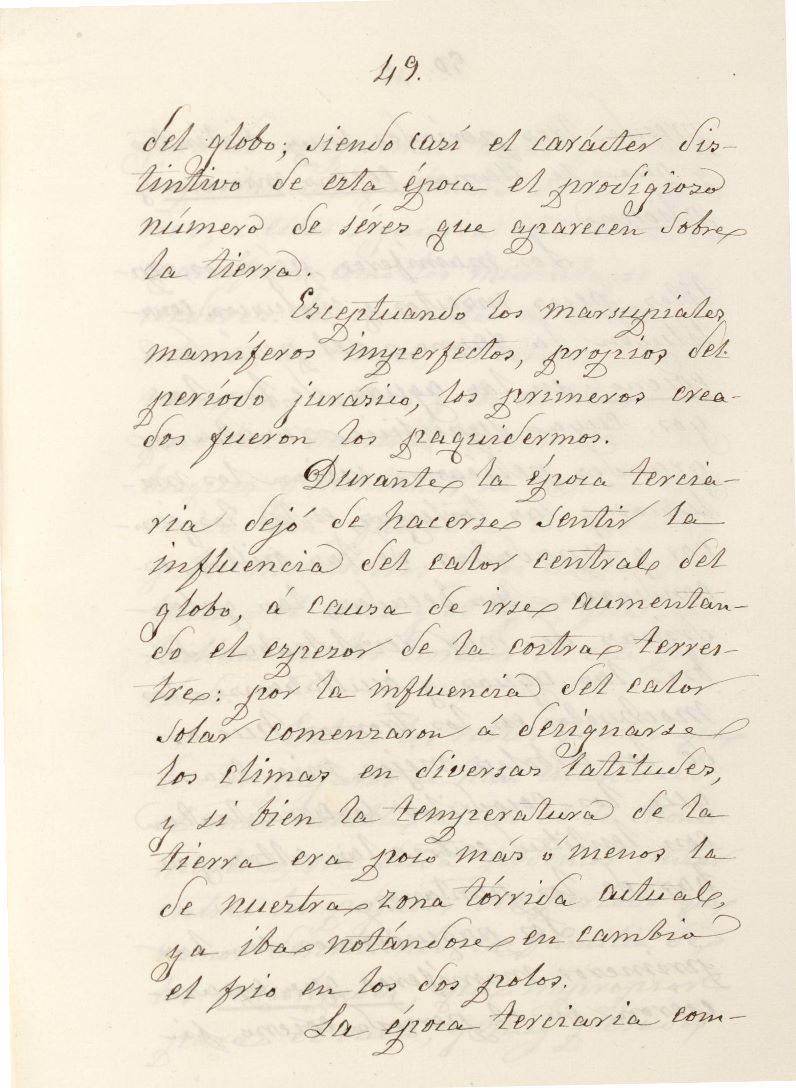 49.
del globo; siendo casí el carácter dis-
tintivo de esta época el prodigioso
número de séres que aparecen sobre
la tierra.
Esceptuando los marsupiales,
mamíferos imperfectos, propios del
período jurásico, los primeros crea-
dos fueron los paquidermos.
Durante la época tercia-
ria dejó de hacerse sentir la
influencia del calor central del
globo, á causa de irse aumentan-
do el espesor de la costra terres-
tre: por la influencia del calor
solar comenzaron á designarse
los climas en diversas latitudes,
y si bien la temperatura de la
tierra era poco más ó menos la
de nuestra zona tórrida actual,
ya iba notándose en cambio
el frio en los dos polos.
La época terciaria com-